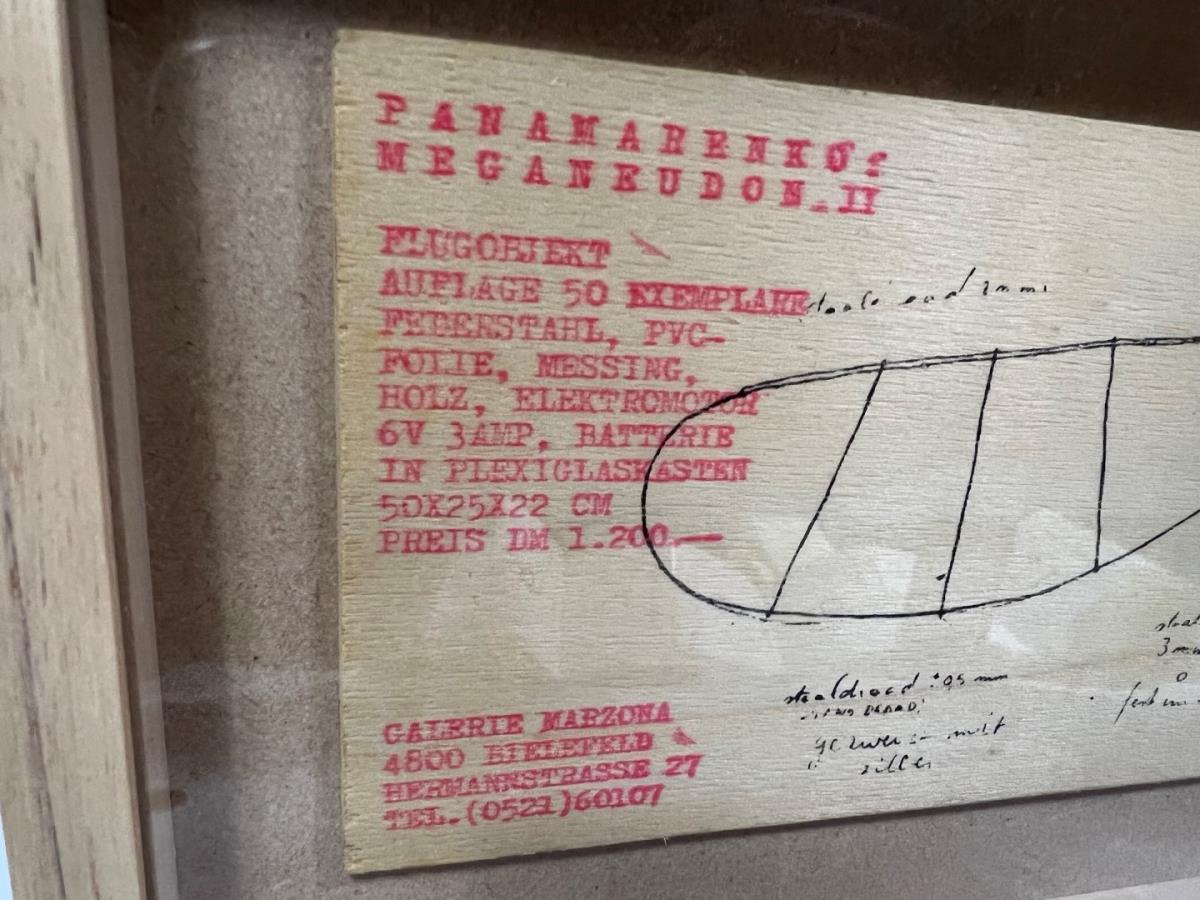 PANAMARENKO:
MEGANEUDON_II
FLUGOBJEKT
AUFLAGE 50 EXEMPLARE
FEDERSTAHL, PVC-
FOLIE, MESSING,
HOLZ, ELEKTROMOTOR
6V 3AMP, BATTERIE
IN PLEXIGLASKASTEN
50X25X22 CM
PREIS DM 1.200.—
2mm
staaldraad 0,5 mm
3mm
GALERIE MARZONA
4800 BIELEFELD
HERMANNSTRASSE 27
TEL.(0521)60107